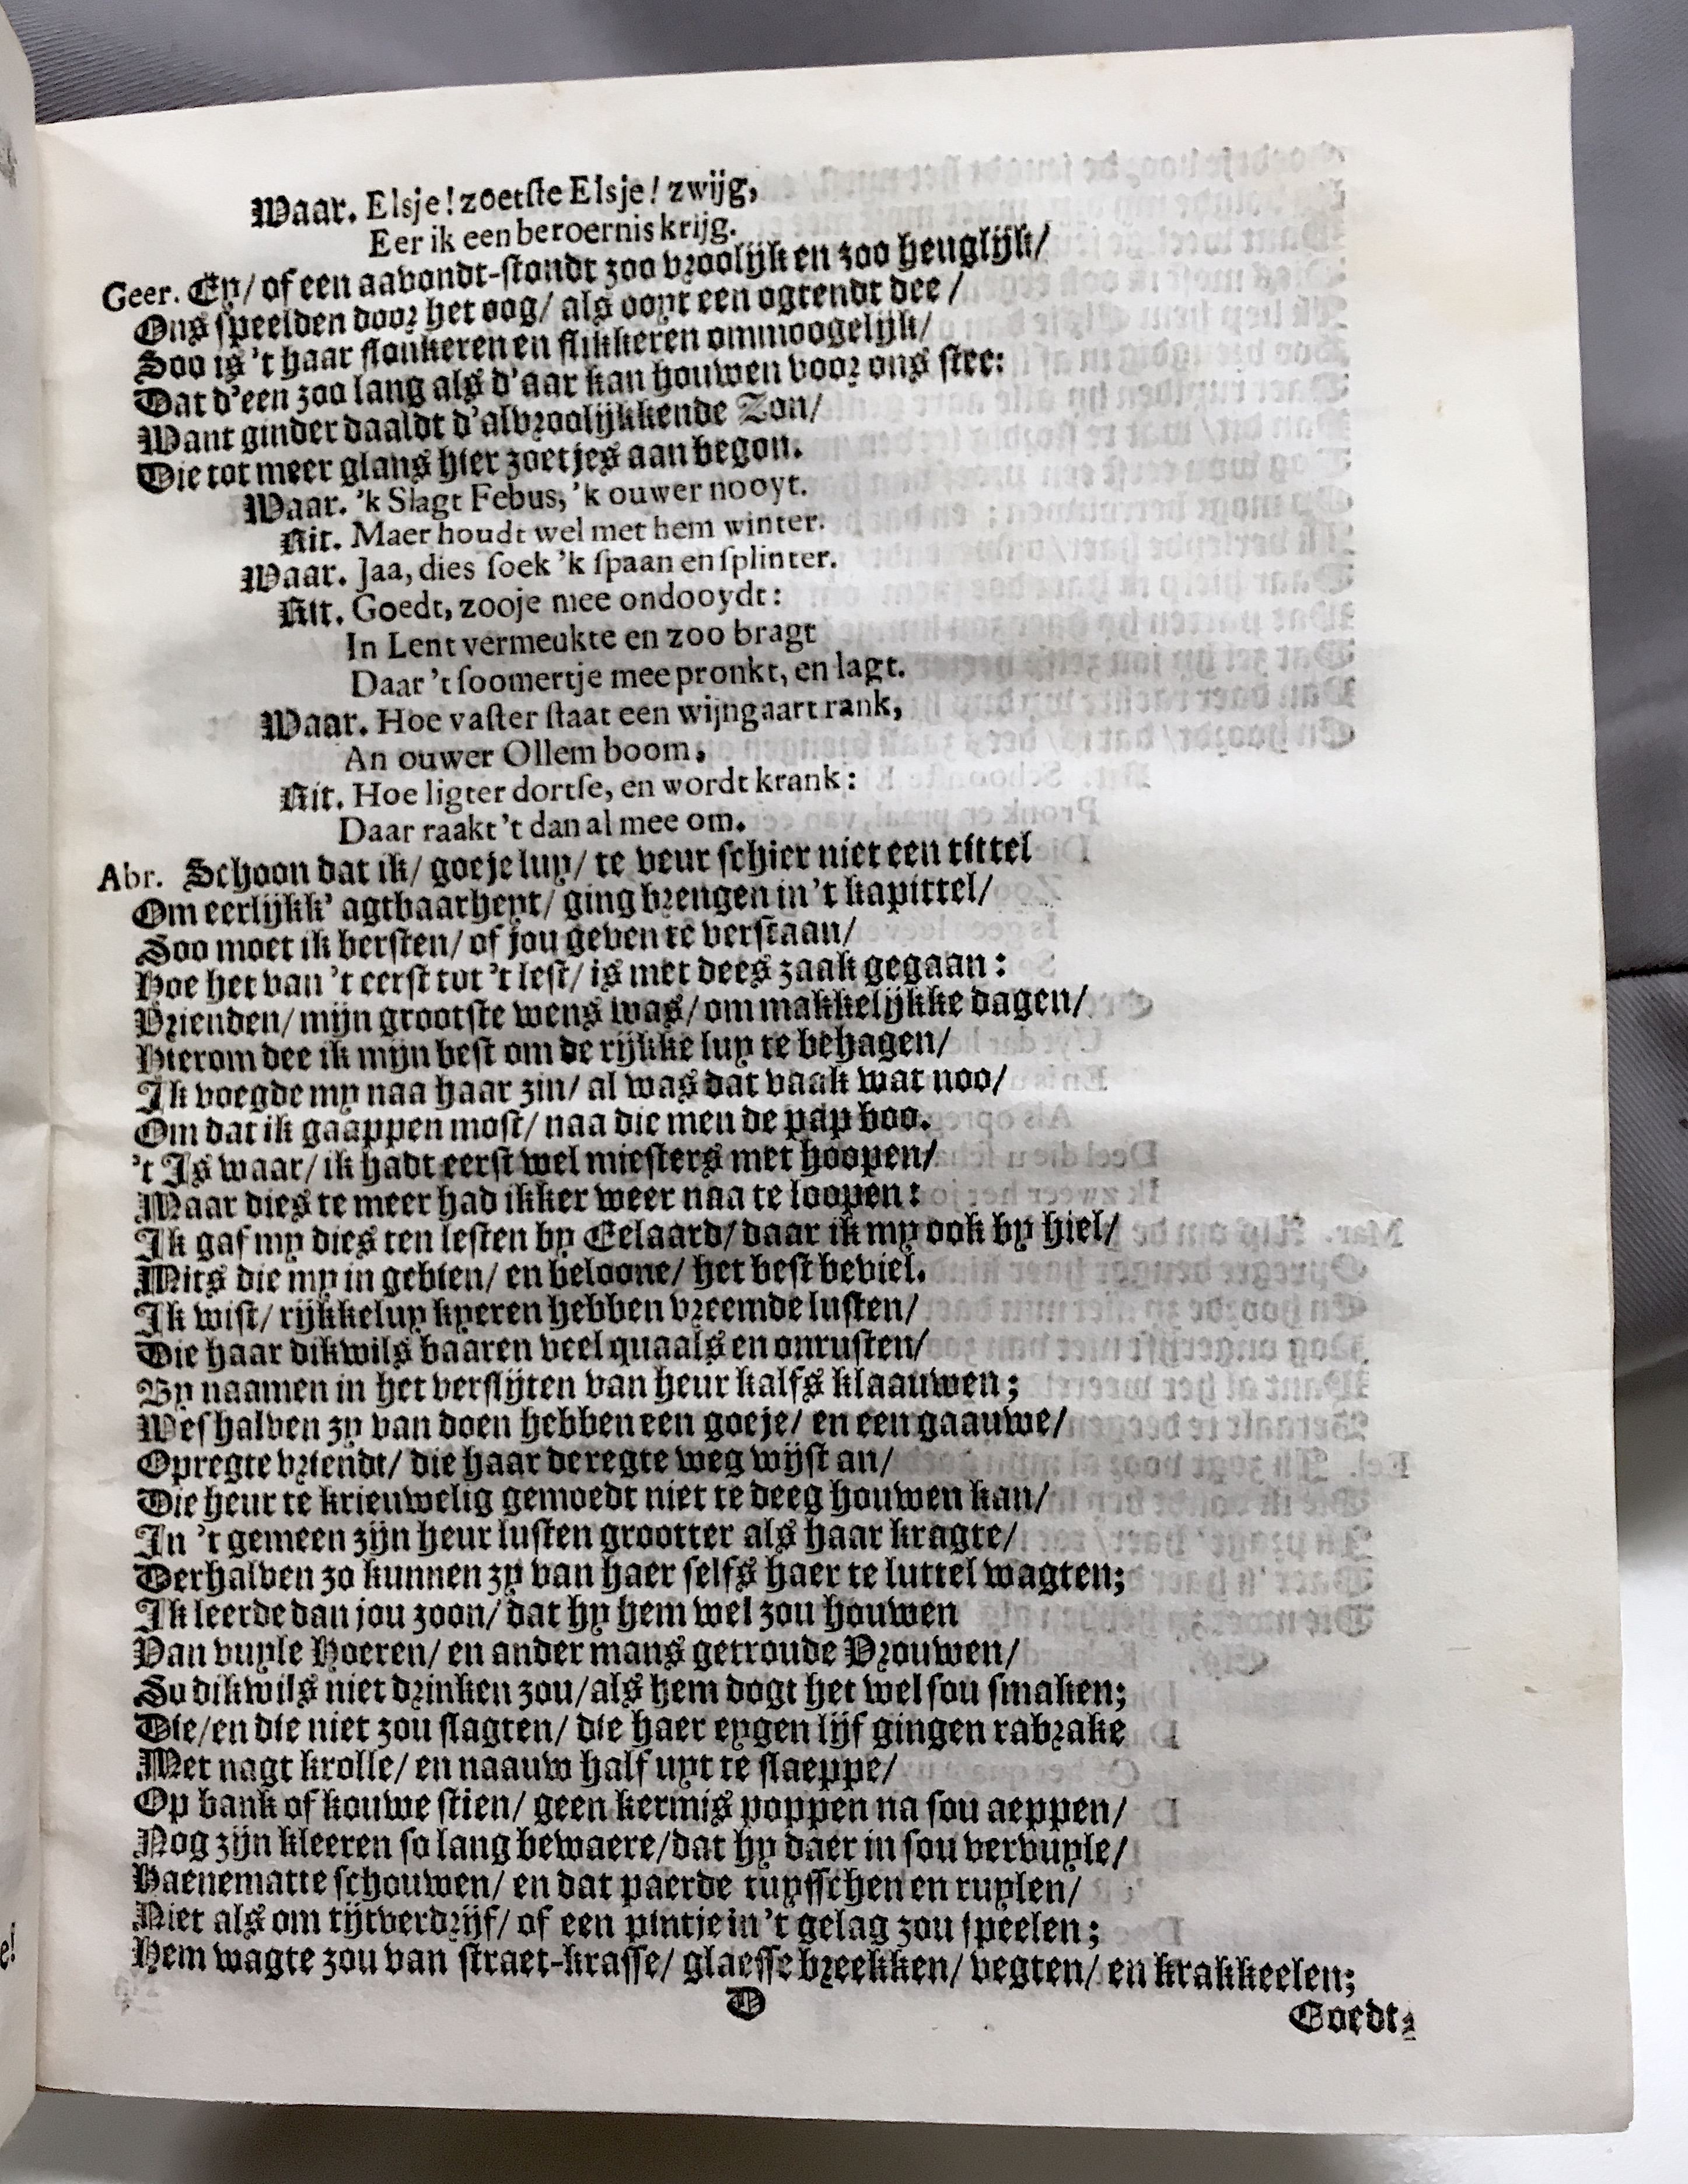 Waar. Elsje! zoetste Elsje! zwijg,
Eer ik een beroernis krijg.
Geer. Ey/ of een aavondt-stondt zoo vroolijk en zoo heuglijk/
Ons speelden door het oog/ als ooyt een ogtendt dee/
Soo is 't haar flonkeren en flikkeren ommoogelijk/
Dat d'een zoo lang als d'aar kan houwen voor ons stee:
Want ginder daaldt d'alvroolijkkende Zon/
Die tot meer glans hier zoetjes aan begon.
Waar. 'k Slagt Febus, 'k ouwer nooyt.
Ait. Maer houdt wel met hem winter.
Waar. Jaa, dies soek 'k spaan en splinter.
Ait. Goedt, zooje mee ondooydt:
In Lent vermeukte en zoo bragt
Daar 't soomertje mee pronkt, en lagt.
Waar. Hoe vaster staat een wijngaart rank,
An ouwer Ollem boom,
Ait. Hoe ligter dortse, en wordt krank:
Daar raakt 't dan al mee om.
Abr. Schoon dat ik/ goeje luy/ te veur schier niet een tittel
Om eerlijkk' agtbaarheyt/ ging brengen in 't kapittel/
Soo moet ik bersten/ of jou geven te verstaan/
Hoe het van 't eerst tot 't lest/ is met dees zaak gegaan:
Vrienden/ mijn grootste wens was/ om makkelijkke dagen/
Hierom dee ik mijn best om de rijkke luy te behagen/
Ik voegde my naa haar zin/ al was dat vaak wat noo/
Om dat ik gaappen most/ naa die men de pap boo.
't Is waar/ ik hadt eerst wel miesters met hoopen/
Maar dies te meer had ikker weer naa te loopen:
Ik gaf my dies ten lesten by Eelaard/ daar ik my ook by hiel/
Mits die my in gebien/ en beloone/ het best beviel.
Ik wist/ rijkkeluy kyeren hebben vreemde lusten/
Die haar dikwils baaren veel quaals en onrusten/
By naamen in het verslijten van heur kalfs klaauwen;
Weshalven zy van doen hebben een goeje/ en een gaauwe/
Opregte vriendt/ die haar de regte weg wijst an/
Die heur te krieuwelig gemoedt niet te deeg houwen kan/
In 't gemeen zijn heur lusten grootter als haar kragte/
Derhalven zo kunnen zy van haer selfs haer te luttel wagten;
Ik leerde dan jou zoon/ dat hy hem wel zou houwen
Van vuyle Hoeren/ en ander mans getroude Vrouwen/
So dikwils niet drinken zou/ als hem dogt het wel sou smaken;
Die/ en die niet zou slagten/ die haer eygen lijf gingen rabrake
Met nagt krolle/ en naauw half uyt te slaeppe/
Op bank of kouwe stien/ geen kermis poppen na sou aeppen/
Nog zijn kleeren so lang bewaere/ dat hy daer in sou vervuyle/
Haenematte schouwen/ en dat paerde tuysschen en ruylen/
Niet als om tijtverdrijf/ of een pintje in 't gelag zou speelen;
Hem wagte zou van straet-krasse/ glaesse breekken/ vegten/ en krakkeelen;
D
Goedt,